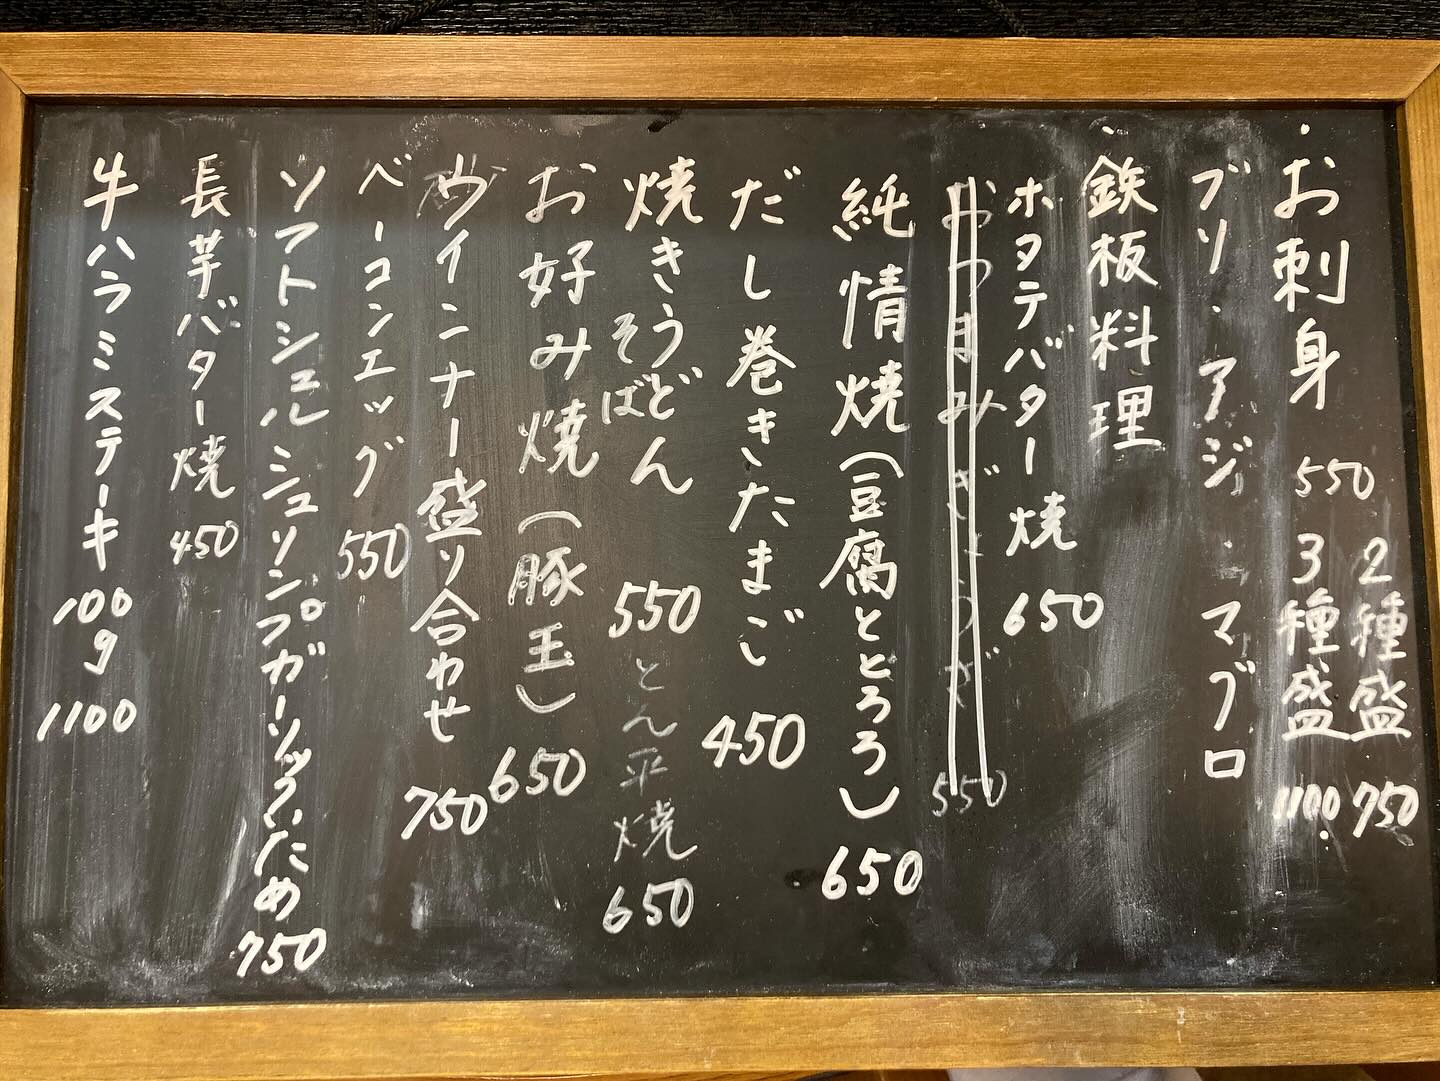 ・お刺身 550 2種盛 750
3種盛 1100
ブリ・アジ・マグロ
・鉄板料理
ホタテバター焼 650
おつまみぎょうざ 550
純情焼(豆腐ととろろ) 650
だし巻きたまご 450
焼きうどん
そば 550
とん平焼 650
お好み焼(豚玉) 650
ウインナー盛り合わせ 750
ベーコンエッグ 550
ソフトシェルシュリンプガーリックいため 750
長芋バター焼 450
牛ハラミステーキ 100g 1100